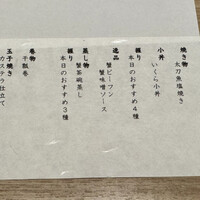 焼き物
太刀魚塩焼き
小丼
いくら小丼
握り
本日のおすすめ4種
逸品
蟹ビーフン
蟹味噌ソース
蒸し物
蟹茶碗蒸し
握り
本日のおすすめ3種
巻物
干瓢巻
玉子焼き
カステラ仕立て